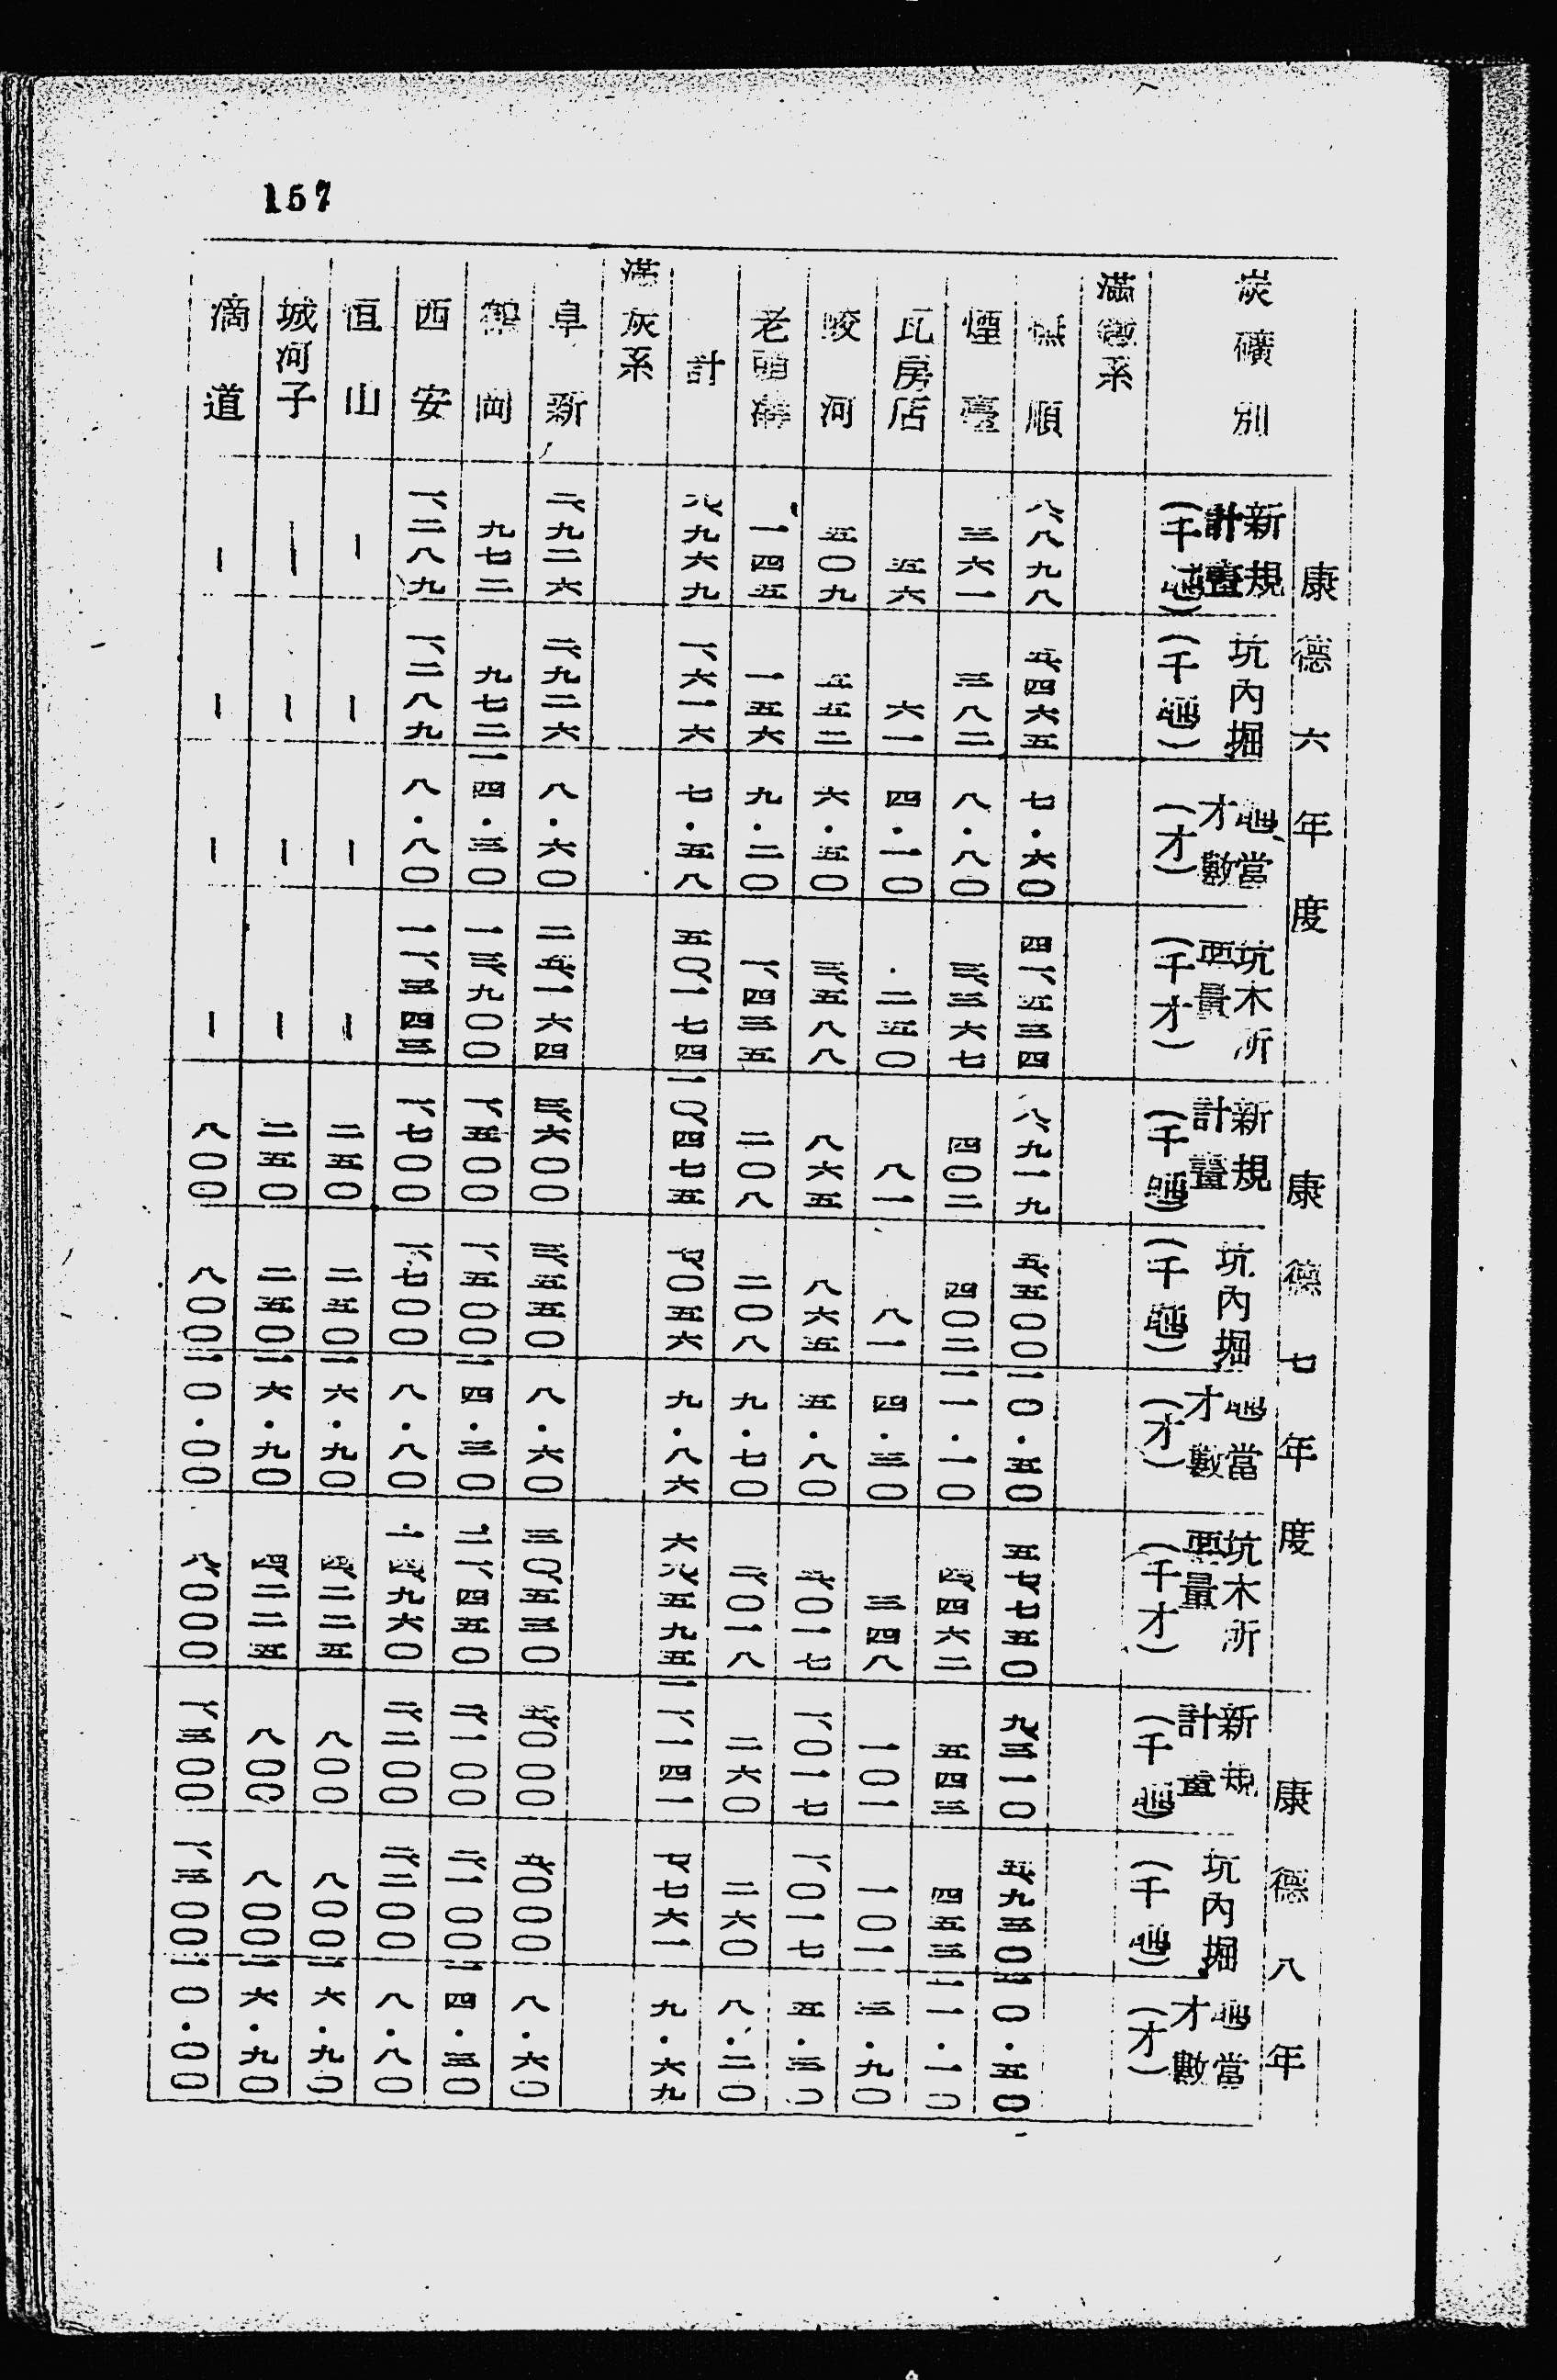 157
康德六年度 康德七年度 康德八年
炭礦別 新規計畫(千瓲) 坑內掘(千瓲) 瓲當才數(才) 坑木所要量(千才) 新規計畫(千瓲) 坑內掘(千瓲) 瓲當才數(才) 坑木所要量(千才) 新規計畫(千瓲) 坑內掘(千瓲) 瓲當才數(才)
滿鐵系
撫順 八、八九八 五、四六五 七・六〇 四一、五三四 八、九一九 五、五〇〇 一〇・五〇 五七、七五〇 九、三一〇 五、九三〇 一〇・五〇
煙臺 三六一 三八二 八・八〇 三、三六七 四〇二 四〇二 一一・一〇 四、四六二 五四三 四五三 一一・一〇
瓦房店 五六 六一 四・一〇 二五〇 八一 八一 四・三〇 三四八 一〇一 一〇一 三・九〇
蛟河 五〇九 五五二 六・五〇 三、五八八 八六五 八六五 五・八〇 五、〇一七 一、〇一七 一、〇一七 五・三〇
老頭溝 一四五 一五六 九・二〇 一、四三五 二〇八 二〇八 九・七〇 二、〇一八 二六〇 二六〇 八・二〇
計 八、九六九 一、六一六 七・五八 五〇、一七四 一〇、四七五 七、〇五六 九・八六 六八、五九五 一一、一四一 七、七六一 九・六九
滿炭系
阜新 二、九二六 二、九二六 八・六〇 二五、一六四 三、六〇〇 三、五五〇 八・六〇 三〇、五三〇 五、〇〇〇 五、〇〇〇 八・六〇
鶴岡 九七二 九七二 一四・三〇 一三、九〇〇 一、五〇〇 一、五〇〇 一四・三〇 二一、四五〇 二、一〇〇 二、一〇〇 一四・三〇
西安 一、二八九 一、二八九 八・八〇 一一、三四三 一、七〇〇 一、七〇〇 八・八〇 一四、九六〇 二、二〇〇 二、二〇〇 八・八〇
恒山 ー ー ー ー 二五〇 二五〇 一六・九〇 四、二二五 八〇〇 八〇〇 一六・九〇
城河子 ー ー ー ー 二五〇 二五〇 一六・九〇 四、二二五 八〇〇 八〇〇 一六・九〇
滴道 ー ー ー ー 八〇〇 八〇〇 一〇・〇〇 八、〇〇〇 一、三〇〇 一、三〇〇 一〇・〇〇